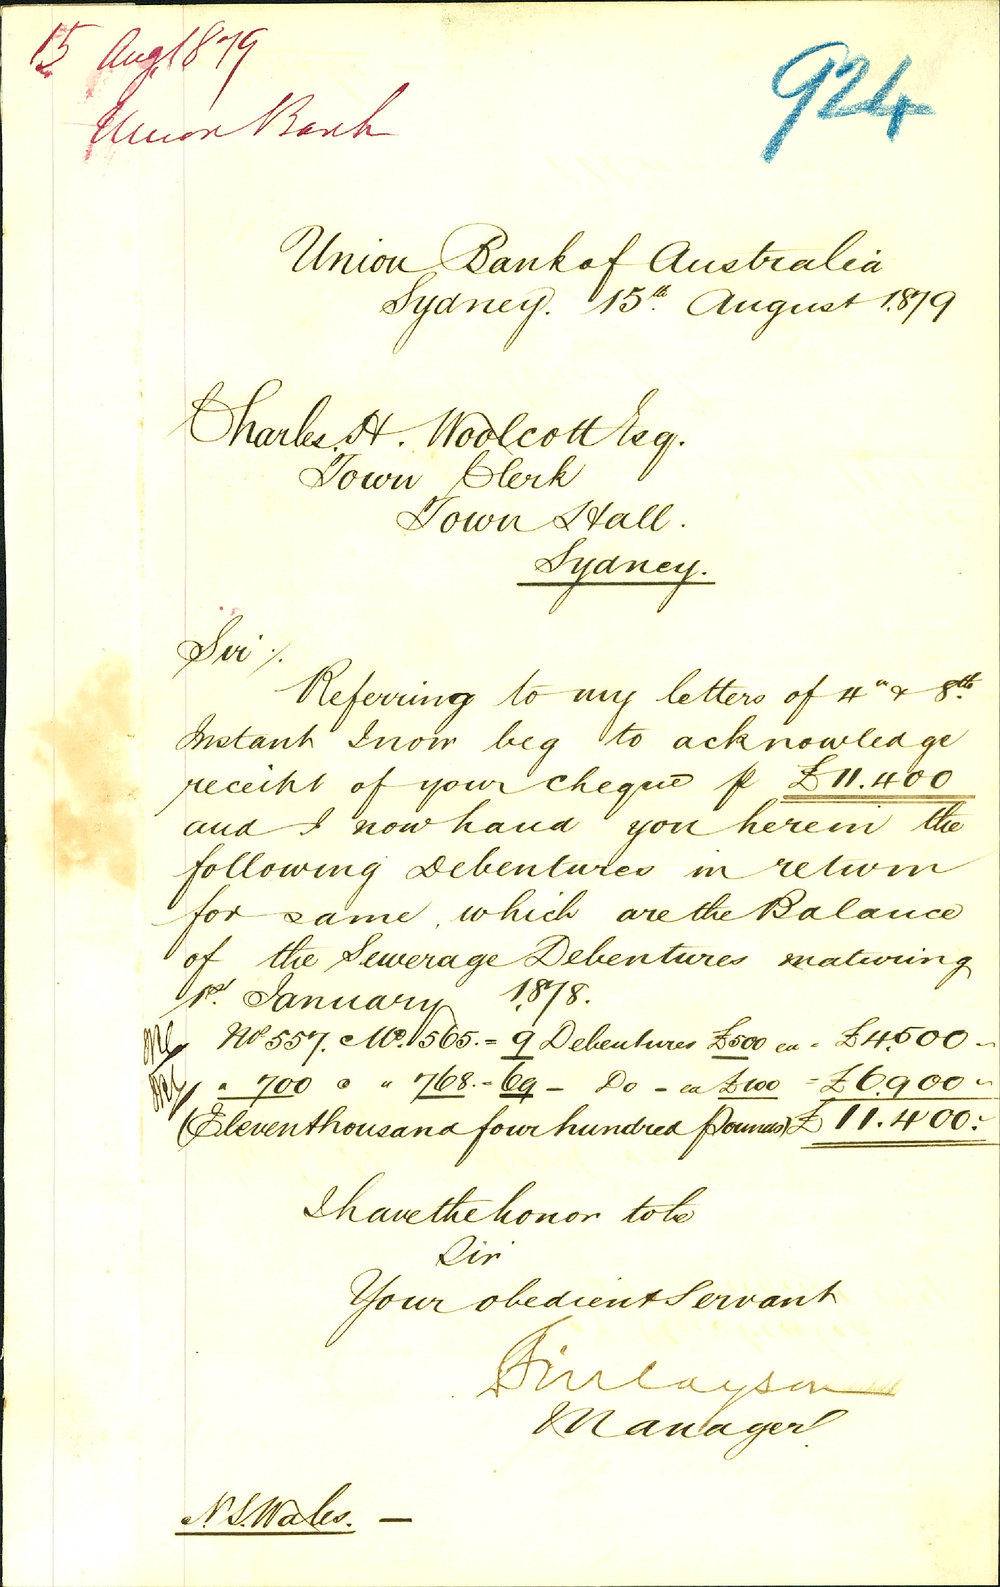 15 Aug 1879
Union Bank
924
Union Bank of Australia
Sydney. 15th. August 1879
Charles. H. Woolcott Esq.
Town Clerk
Town Hall.
Sydney.
Sir /.
Referring to my letters of 4" & 8th.
Instant I now beg to acknowledge
receipt of your cheque p £11.400
and I now hand you herein the
following Debentures in return
for same, which are the Balance
of the Sewerage Debentures maturing
1st. January 1878.
No 557. @ No. 565. = 9 Debentures £500 ea = £4500 "
" 700 @ " 768. = 69 - Do - ea £100 = £6900 "
(Eleven thousand four hundred pounds) £11.400. "
I have the honor to be
Sir
Your obedient Servant
Finlayson
Manager
N. S. Wales. —